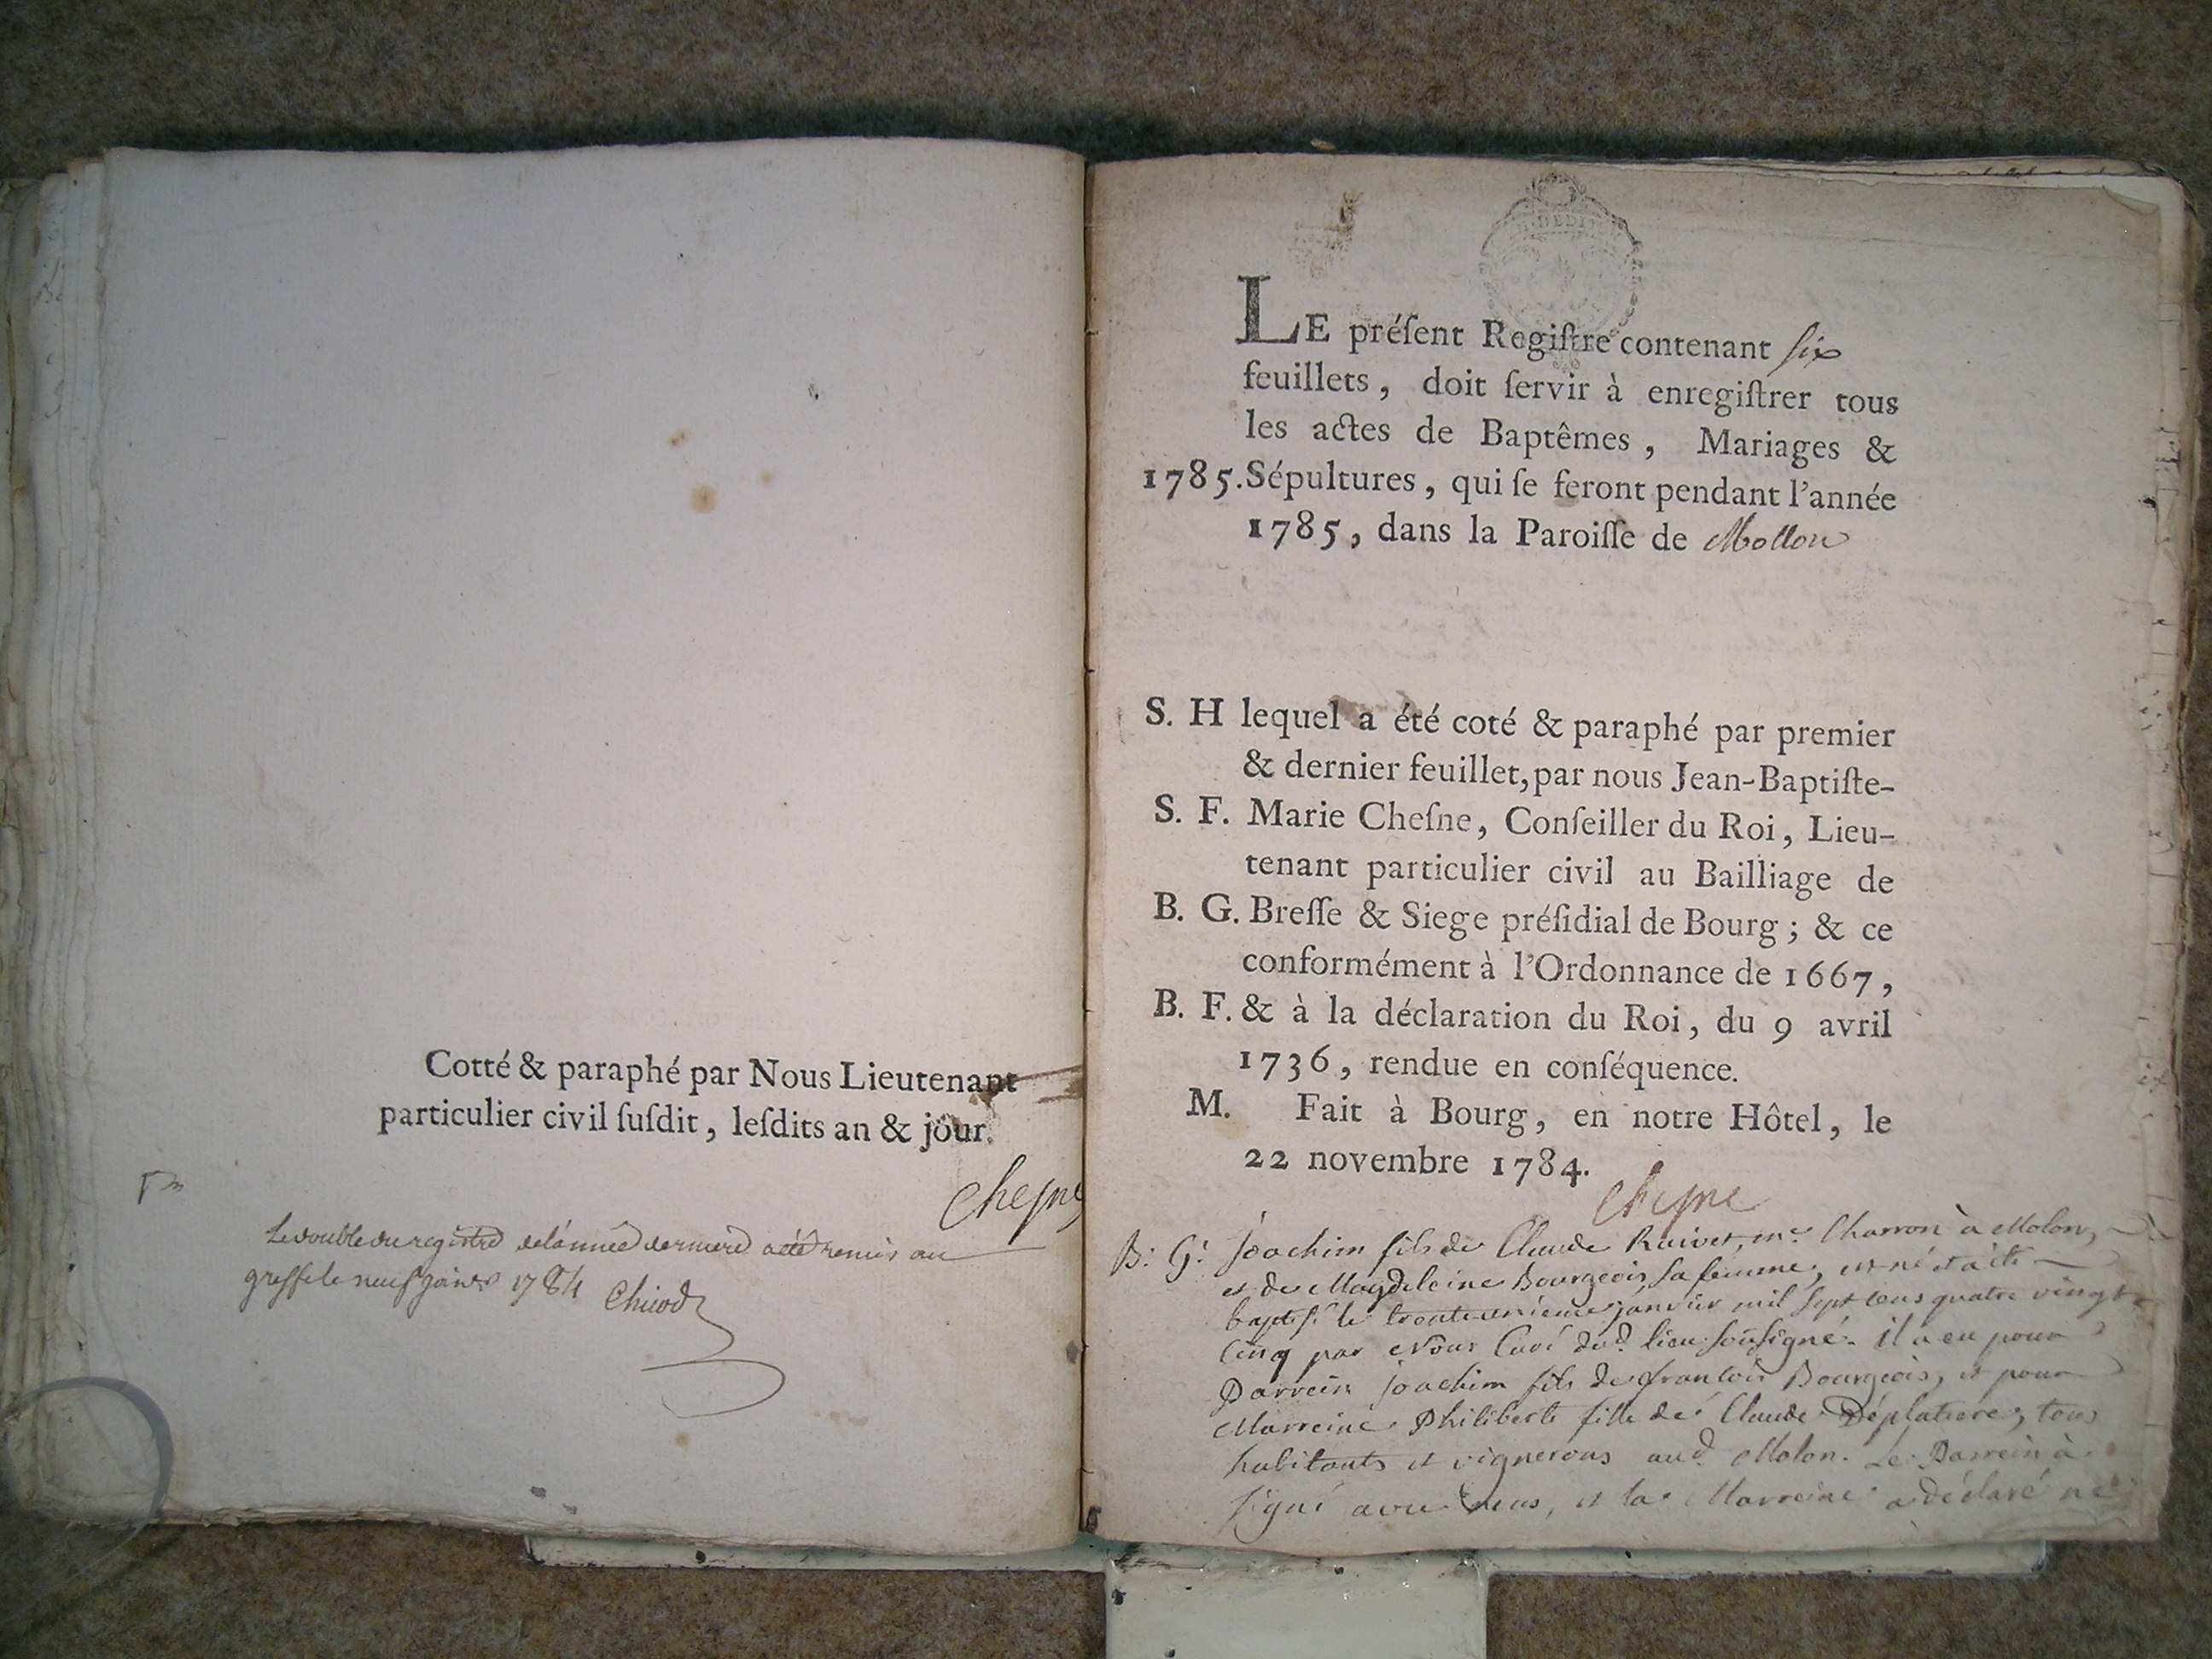 Cotté & paraphé par Nous Lieutenant
particulier civil ſuſdit, leſdits an & jour.
Cheſne
Le double du registre de l'année derniere a été remis au
greffe le neuf janvr 1784
LE préſent Regiſtre contenant ſix
feuillets, doit ſervir à enregiſtrer tous
les actes de Baptêmes, Mariages &
1785. Sépultures, qui ſe feront pendant l'année
1785, dans la Paroiſſe de Mollon
S. H lequel a été coté & paraphé par premier
& dernier feuillet, par nous Jean-Baptiſte-
S. F. Marie Cheſne, Conſeiller du Roi, Lieu-
tenant particulier civil au Bailliage de
B. G. Breſſe & Siege préſidial de Bourg; & ce
conformément à l'Ordonnance de 1667,
B. F. & à la déclaration du Roi, du 9 avril
1736, rendue en conſéquence.
M. Fait à Bourg, en notre Hôtel, le
22 novembre 1784.
Cheſne
B: G: Joachim fils de Claude Ruivet, me. Charron à Molon,
et de Magdeleine Bourgeois sa femme, est né et a été
baptisé le trente unieme janvier mil sept cens quatre vingt
cinq par Nous Curé dud. lieu soussigné. il a eu pour
Parrein joachim fils de françois Bourgeois, et pour
Marreine Philiberte fille de Claude Déplatiere, tous
habitants et vignerons aud. Molon. Le Parrein à
signé avec nous, et la Marreine a déclaré ne